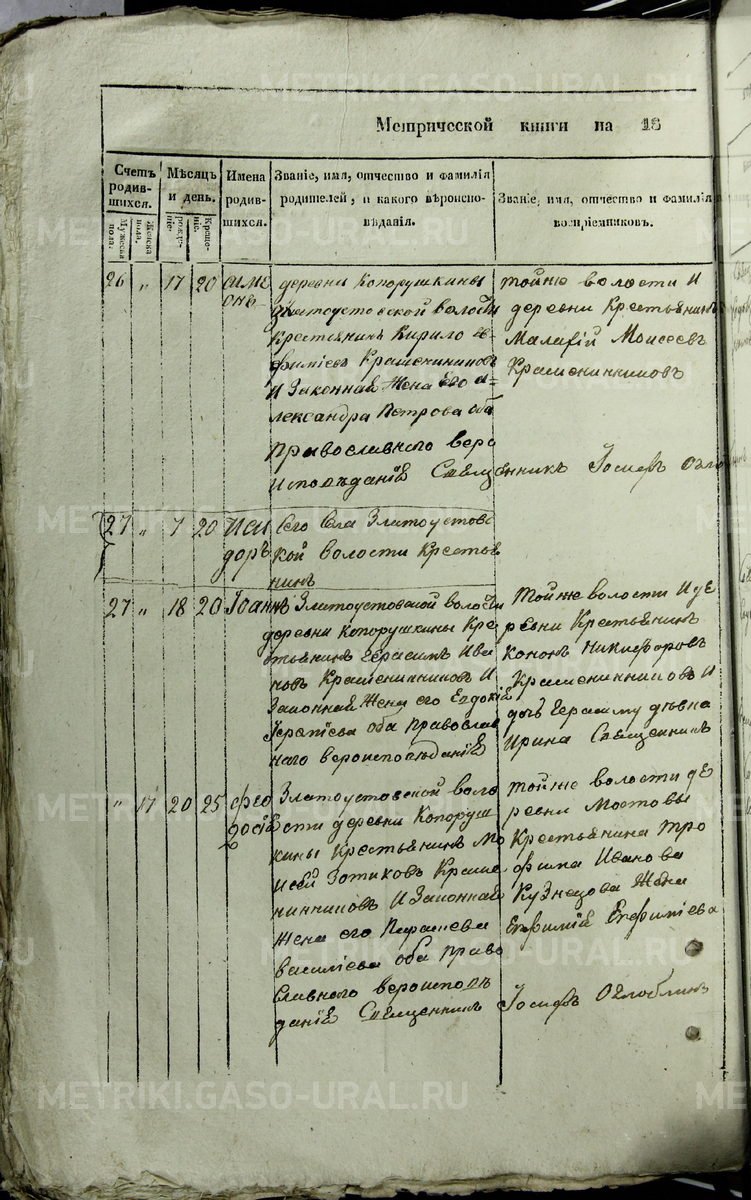 Метрической книги на 18
Счетъ родив-шихся.
Мѣсяцъ и день.
Имена родив-шихся.
Званіе, имя, отчество и фамилія родителей, и какого вѣроиспо-вѣданія.
Званіе, имя, отчество и фамилія воспріемниковъ.
Мужеска пола.
Женска пола.
рожде-ніе.
Креще-ніе.
26 „ 17 20 симе
онъ
деревни Копорушкины
Златоустовской волости
Крестьянинъ Кирило Ев
фиміевъ Крашенинниковъ
И Законная Жена Его а-
лександра Петрова оба
Православного веро
исповѣданіѣ Священникъ Іосифъ Огло
тойже волости И
деревни Крестьянинъ
Малафій Моисеевъ
Крашенинниковъ
27 „ 7 20 Иси
доръ
Сего Села Златоустовс
кой волости Крестья
нинъ
27 „ 18 20 Іоаннъ
Златоустовской волости
деревни Копорушкины Кре
стьянинъ Герасимъ Ива
новъ Крашенинниковъ И
Законная Жена его Евдокія
Терентіева оба Православ
ного вероисповѣданіѣ
Тойже волости И де
ревни Крестьянинъ
Кононъ Никифоровъ
Крашенинниковъ И
дочь Герасиму дѣвка
Ирина Священникъ
„ 17 20 25 фео
досіѣ
Златоустовской воло
сти деревни Копоруш
кины Крестьянинъ Мо
исей Зотиковъ Краше
нинниковъ И Законная
Жена его Парасева
василіева оба Право
славного вероисповѣ
даніѣ Священникъ Іосифъ Оглоблинъ
тойже волости де
ревни Мостовы
Крестьянина Тро
фима Иванова
Кузнецова Жена
Евфимія Евфиміева
METRIKI.GASO-URAL.RU